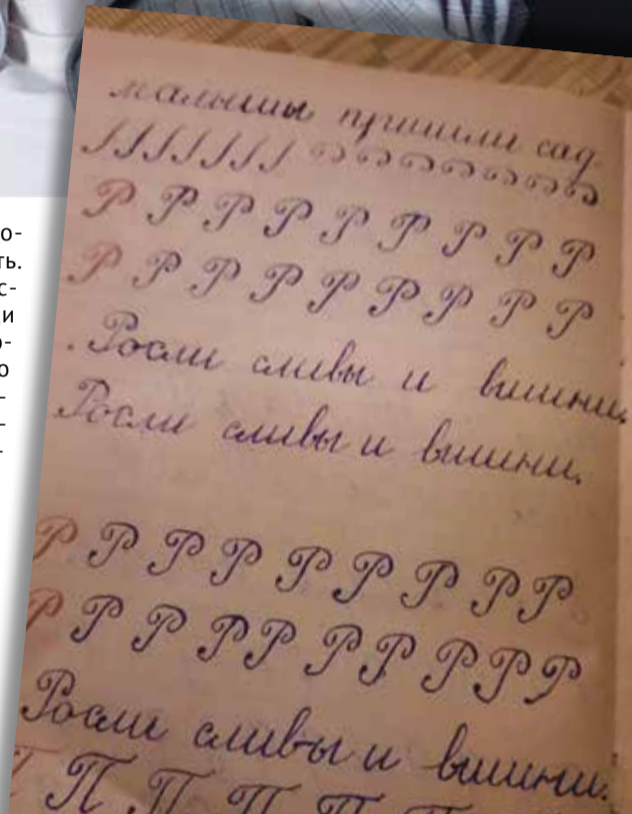 о-
ть.
с-
и
о-
о
-
-
-
малыши пришли сад
Р Р Р Р Р Р Р Р Р
Р Р Р Р Р Р Р Р Р
Росли сливы и вишни.
Росли сливы и вишни.
Р Р Р Р Р Р Р Р Р
Р Р Р Р Р Р Р Р Р Р
Росли сливы и вишни.
П П П П П П